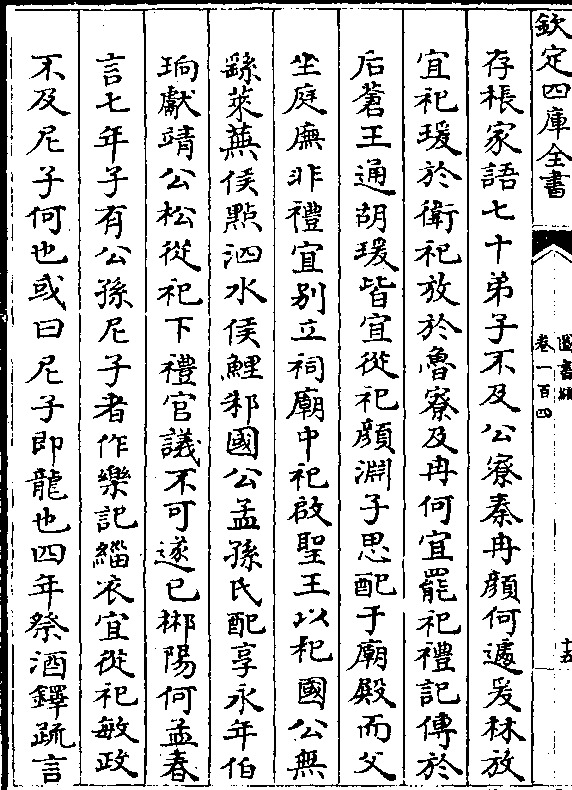 欽定四庫全書
圖書編
卷一百四
十五
存棖家語七十弟子不及公寮秦冉顏何蘧爰林放
宜祀瑗於衛祀放於魯寮及冉何宜罷祀禮記傳於
后蒼王通胡瑗皆宜從祀顏淵子思配于廟殿而父
坐庭廡非禮宜别立祠廟中祀啟聖王以杞國公無
繇萊蕪侯㸃泗水侯鯉邾國公孟孫氏配享永年伯
珦獻靖公松從祀下禮官議不可遂已郴陽何孟春
言七年子有公孫尼子者作樂記緇衣宜從祀敏政
不及尼子何也或曰尼子即龍也四年祭酒鐸疏言